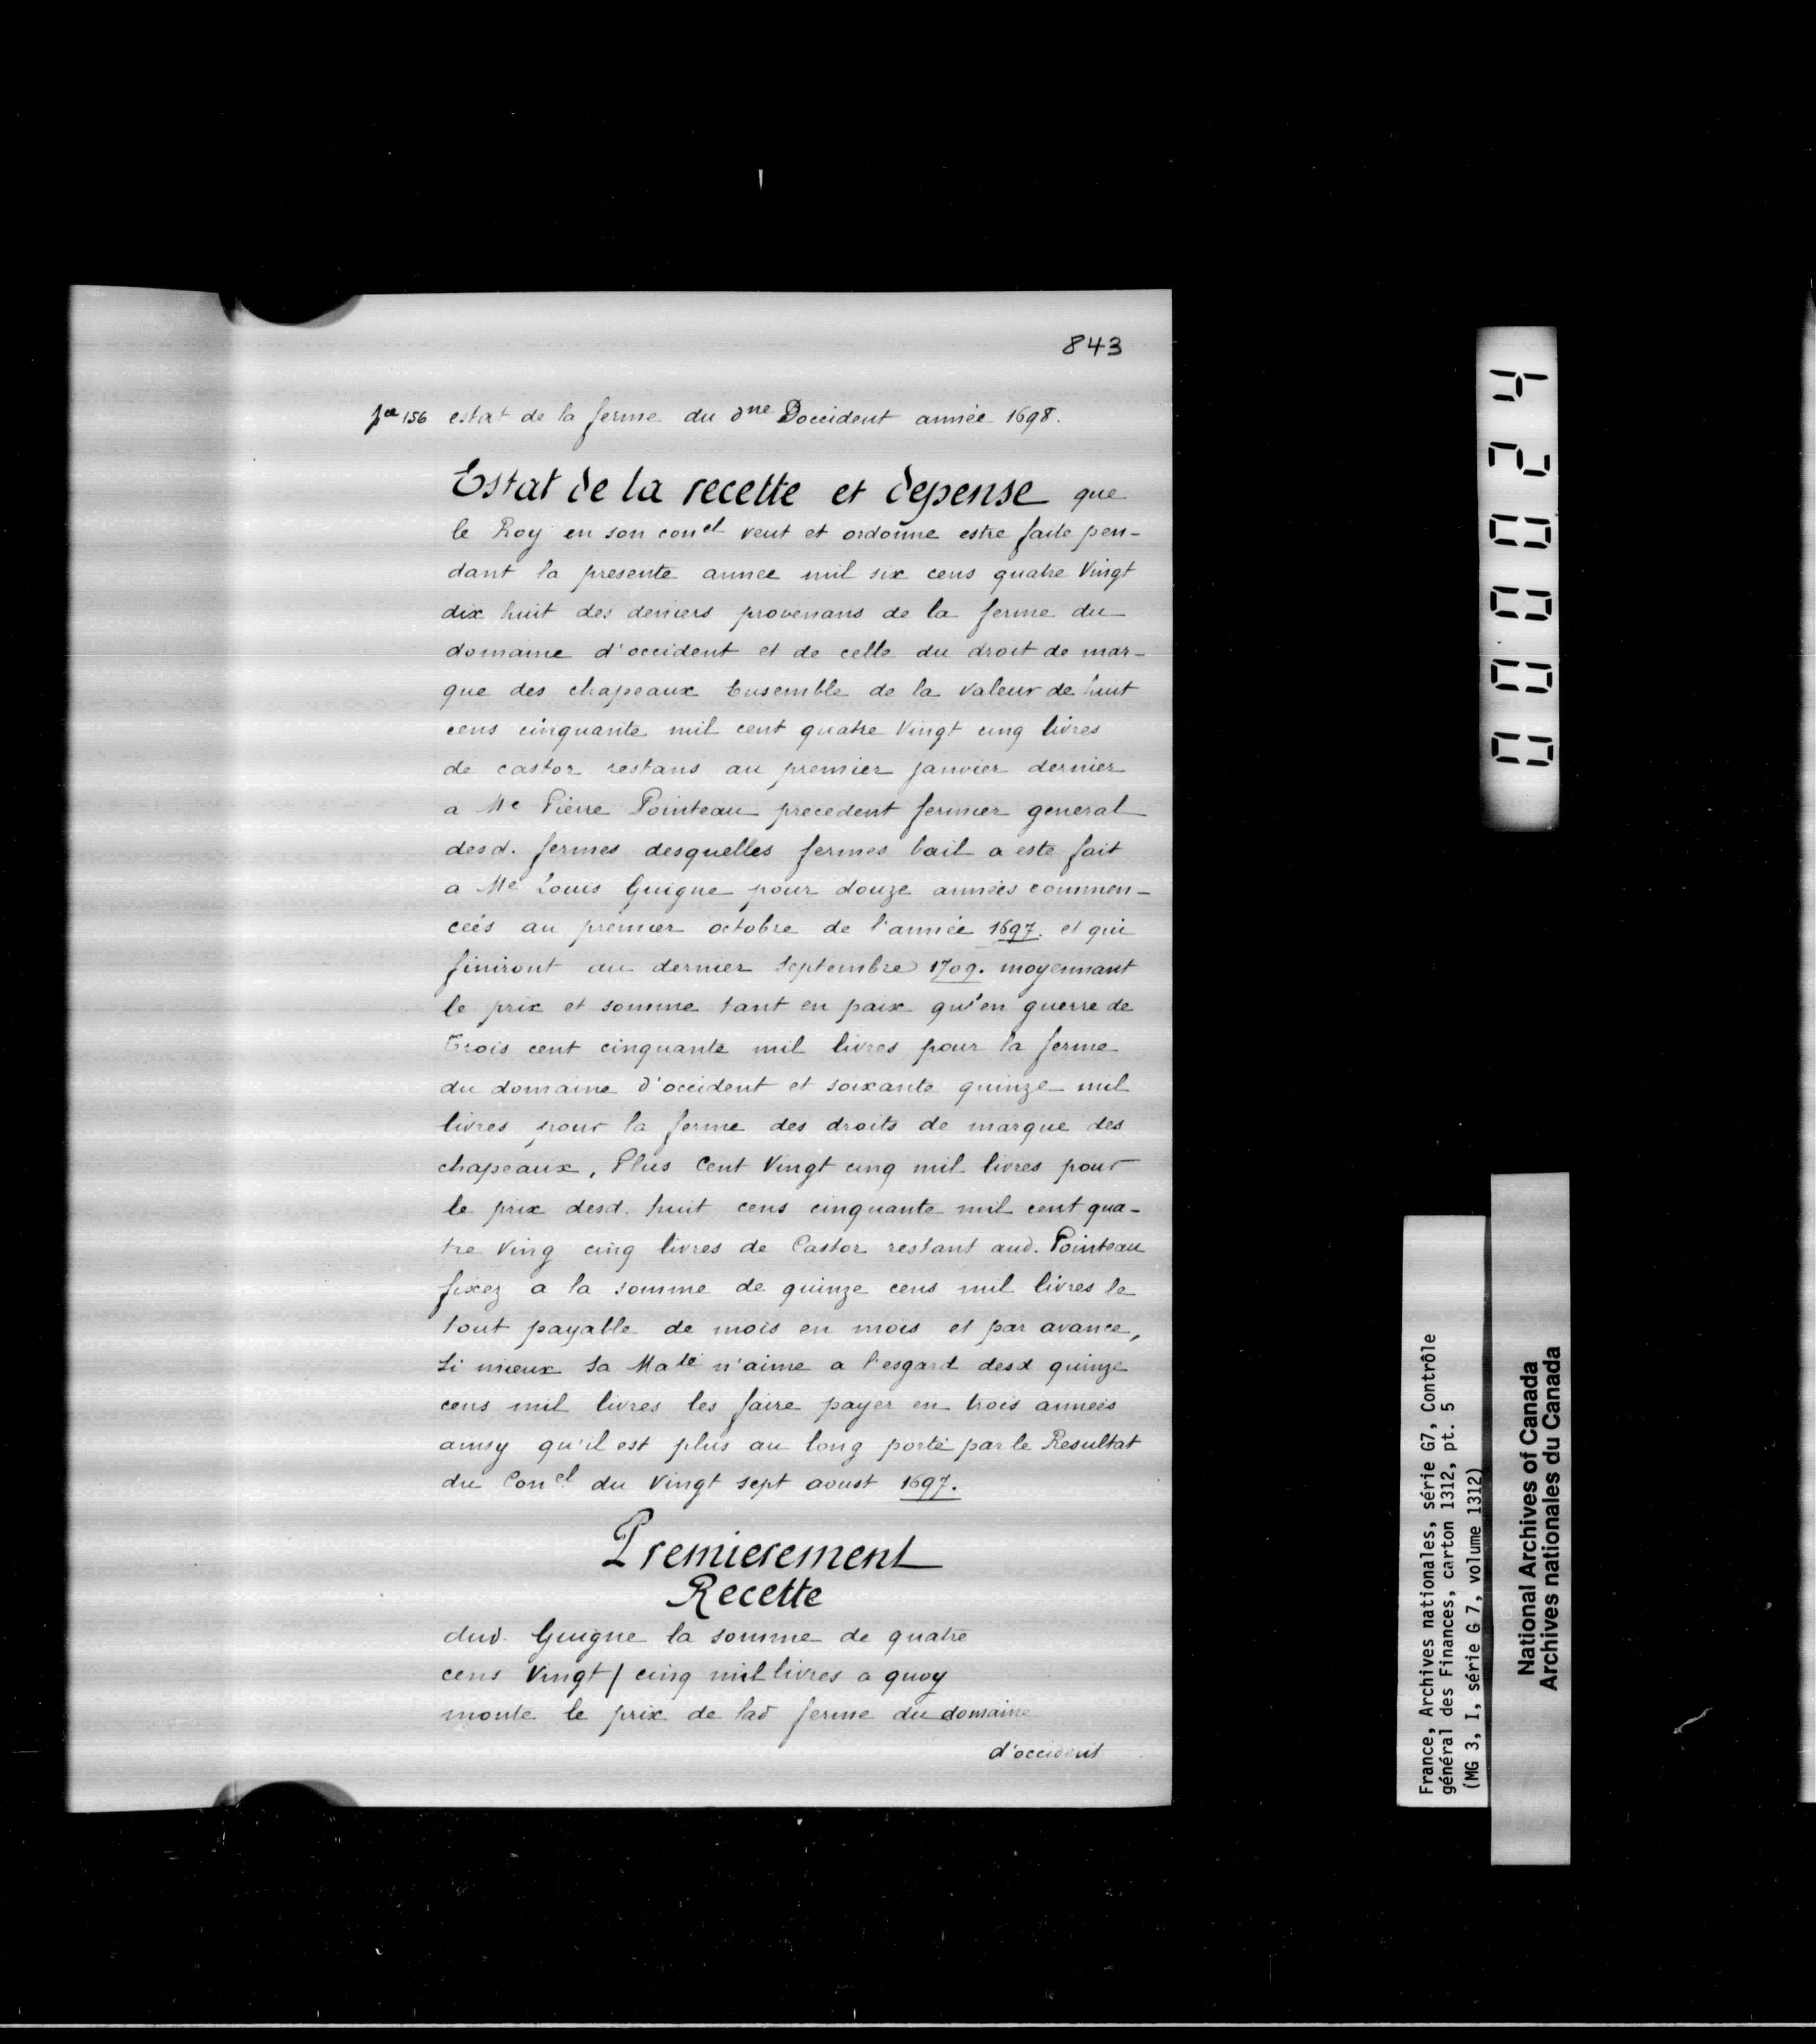 843
pce 156 estat de la ferme du dne Doccident année 1698.
Estat de la recette et depense que
le Roy en son conel veut et ordoñne estre faite pen-
dant la presente annee mil six cens quatre Vingt
dix huit des deniers provenans de la ferme du
domaine d'occident et de celle du droit de mar-
que des chapeaux Ensemble de la valeur de huit
cens cinquante mil cent quatre Vingt cinq livres
de castor restans au premier janvier dernier
a Me Pierre Pointeau precedent fermier general
desd. fermes desquelles fermes bail a este fait
a Me Louis Guigue pour douze années commen-
ceés au premier octobre de l'année 1697. et qui
finiront au dernier Septembre 1709. moyennant
le prix et somme tant en paix qu'en guerre de
Trois cent cinquante mil livres pour la ferme
du domaine d'occident et soixante quinze mil
livres pour la ferme des droits de marque des
chapeaux, Plus Cent Vingt cinq mil livres pour
le prix desd. huit cens cinquante mil cent qua-
tre Ving cinq livres de Castor restant aud. Pointeau
fixez a la somme de quinze cens mil livres le
tout payable de mois en mois et par avance,
Si mieux Sa Maté n'aime a l'esgard desd quinze
cens mil livres les faire payer en trois années
ainsy qu'il est plus au long porté par le Resultat
du Conel du Vingt sept aoust 1697.
Premierement
Recette
dud. Guigue la somme de quatre
cens Vingt / cinq mil livres a quoy
monte le prix de lad ferme du domaine
d'occident
00024
France, Archives nationales, série G7, Contrôle
général des Finances, carton 1312, pt. 5
(MG 3, I, série G 7, volume 1312)
National Archives of Canada
Archives nationales du Canada